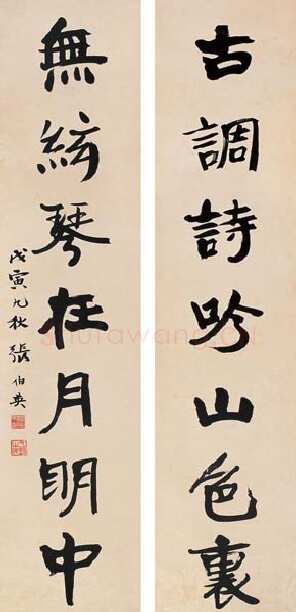 古調詩吟山色裏
無絃琴在月明中
戊寅九秋張伯英